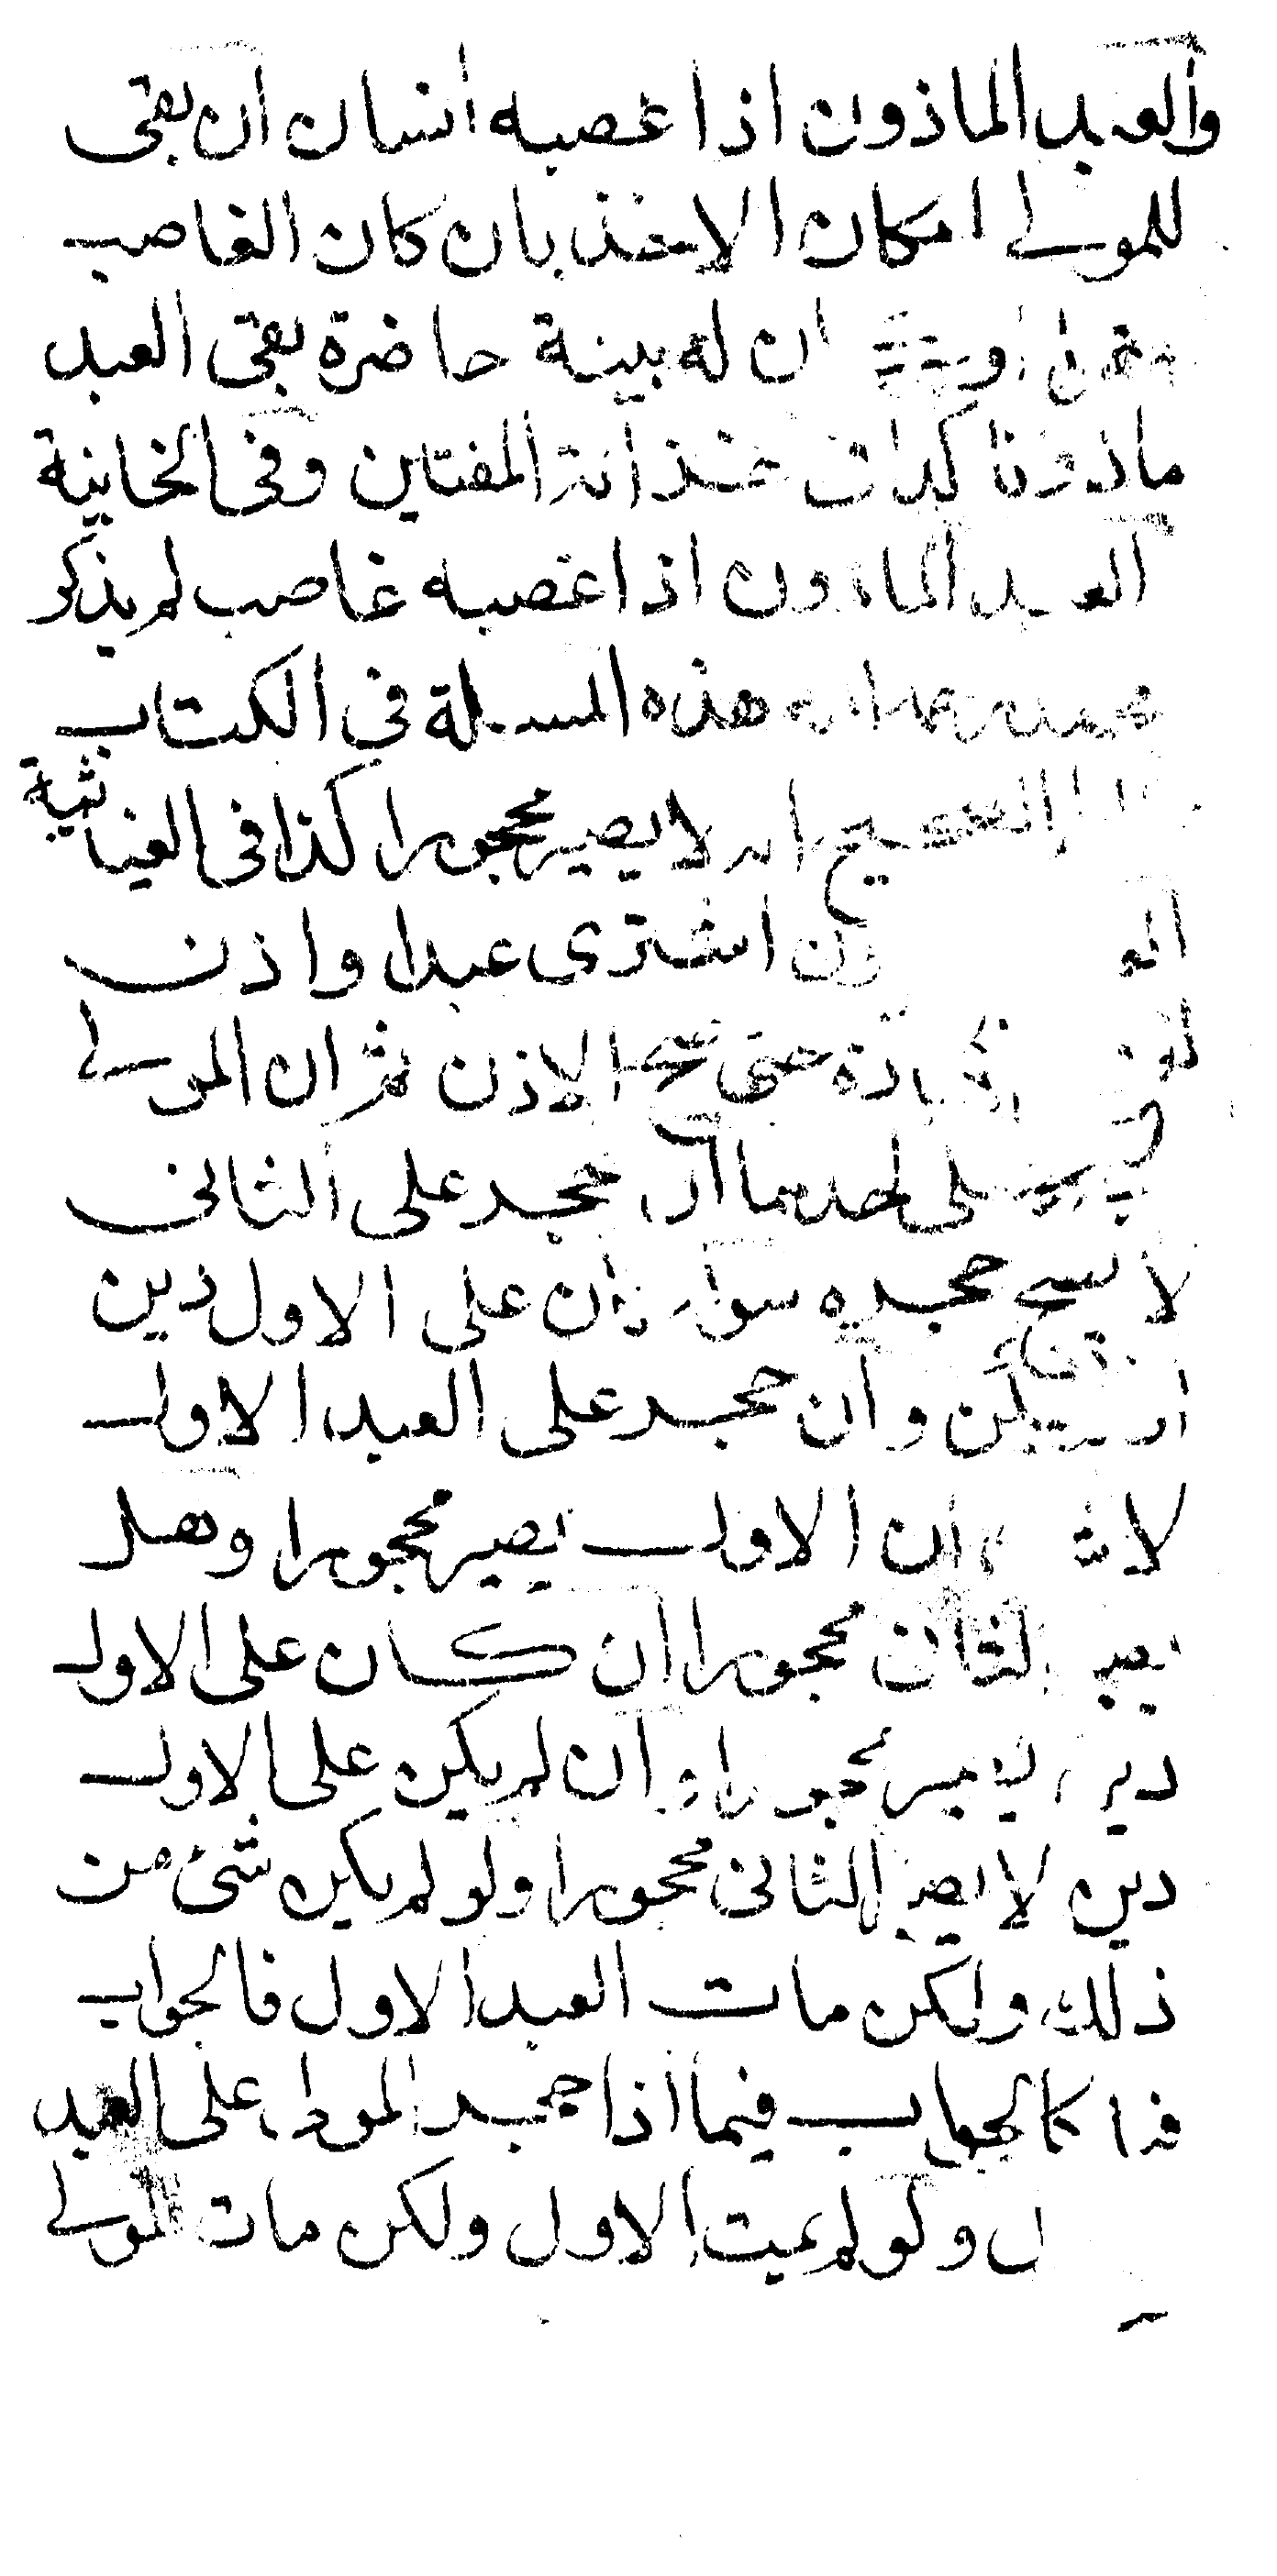 والعبد الماذون اذا غصبه انسان ان بقى
للمولى امكان الاخذ بان كان الغاصب
ان له بينة حاضرة بقى العبد
ماذونا كذا فى خزانة المفتاين وفى الخانية
العبد الماذون اذا غصبه غاصب لم يذكر
محمد رحمه الله هذه المسىلة فى الكتاب
الصحيح انه لا يصير محجورا كذا فى الغياثية
اشترى عبدا واذن
التجارة حتى صح الاذن ثم ان المولى
على احدهما ان حجر على الثانى
لا يصح حجره سواء كان على الاول دين
او لم يكن وان حجر على العبد الاول
لا شك ان الاول يصير محجورا وهل
يصير الثانى محجورا ان كان على الاول
دين يصير محجورا وان لم يكن على الاول
دين لا يصير الثانى محجورا ولو لم يكن شئ من
ذلك ولكن مات العبد الاول فالجواب
فيه كالجواب فيما اذا حجر المولى على العبد
ولو لم يمت الاول ولكن مات المولى